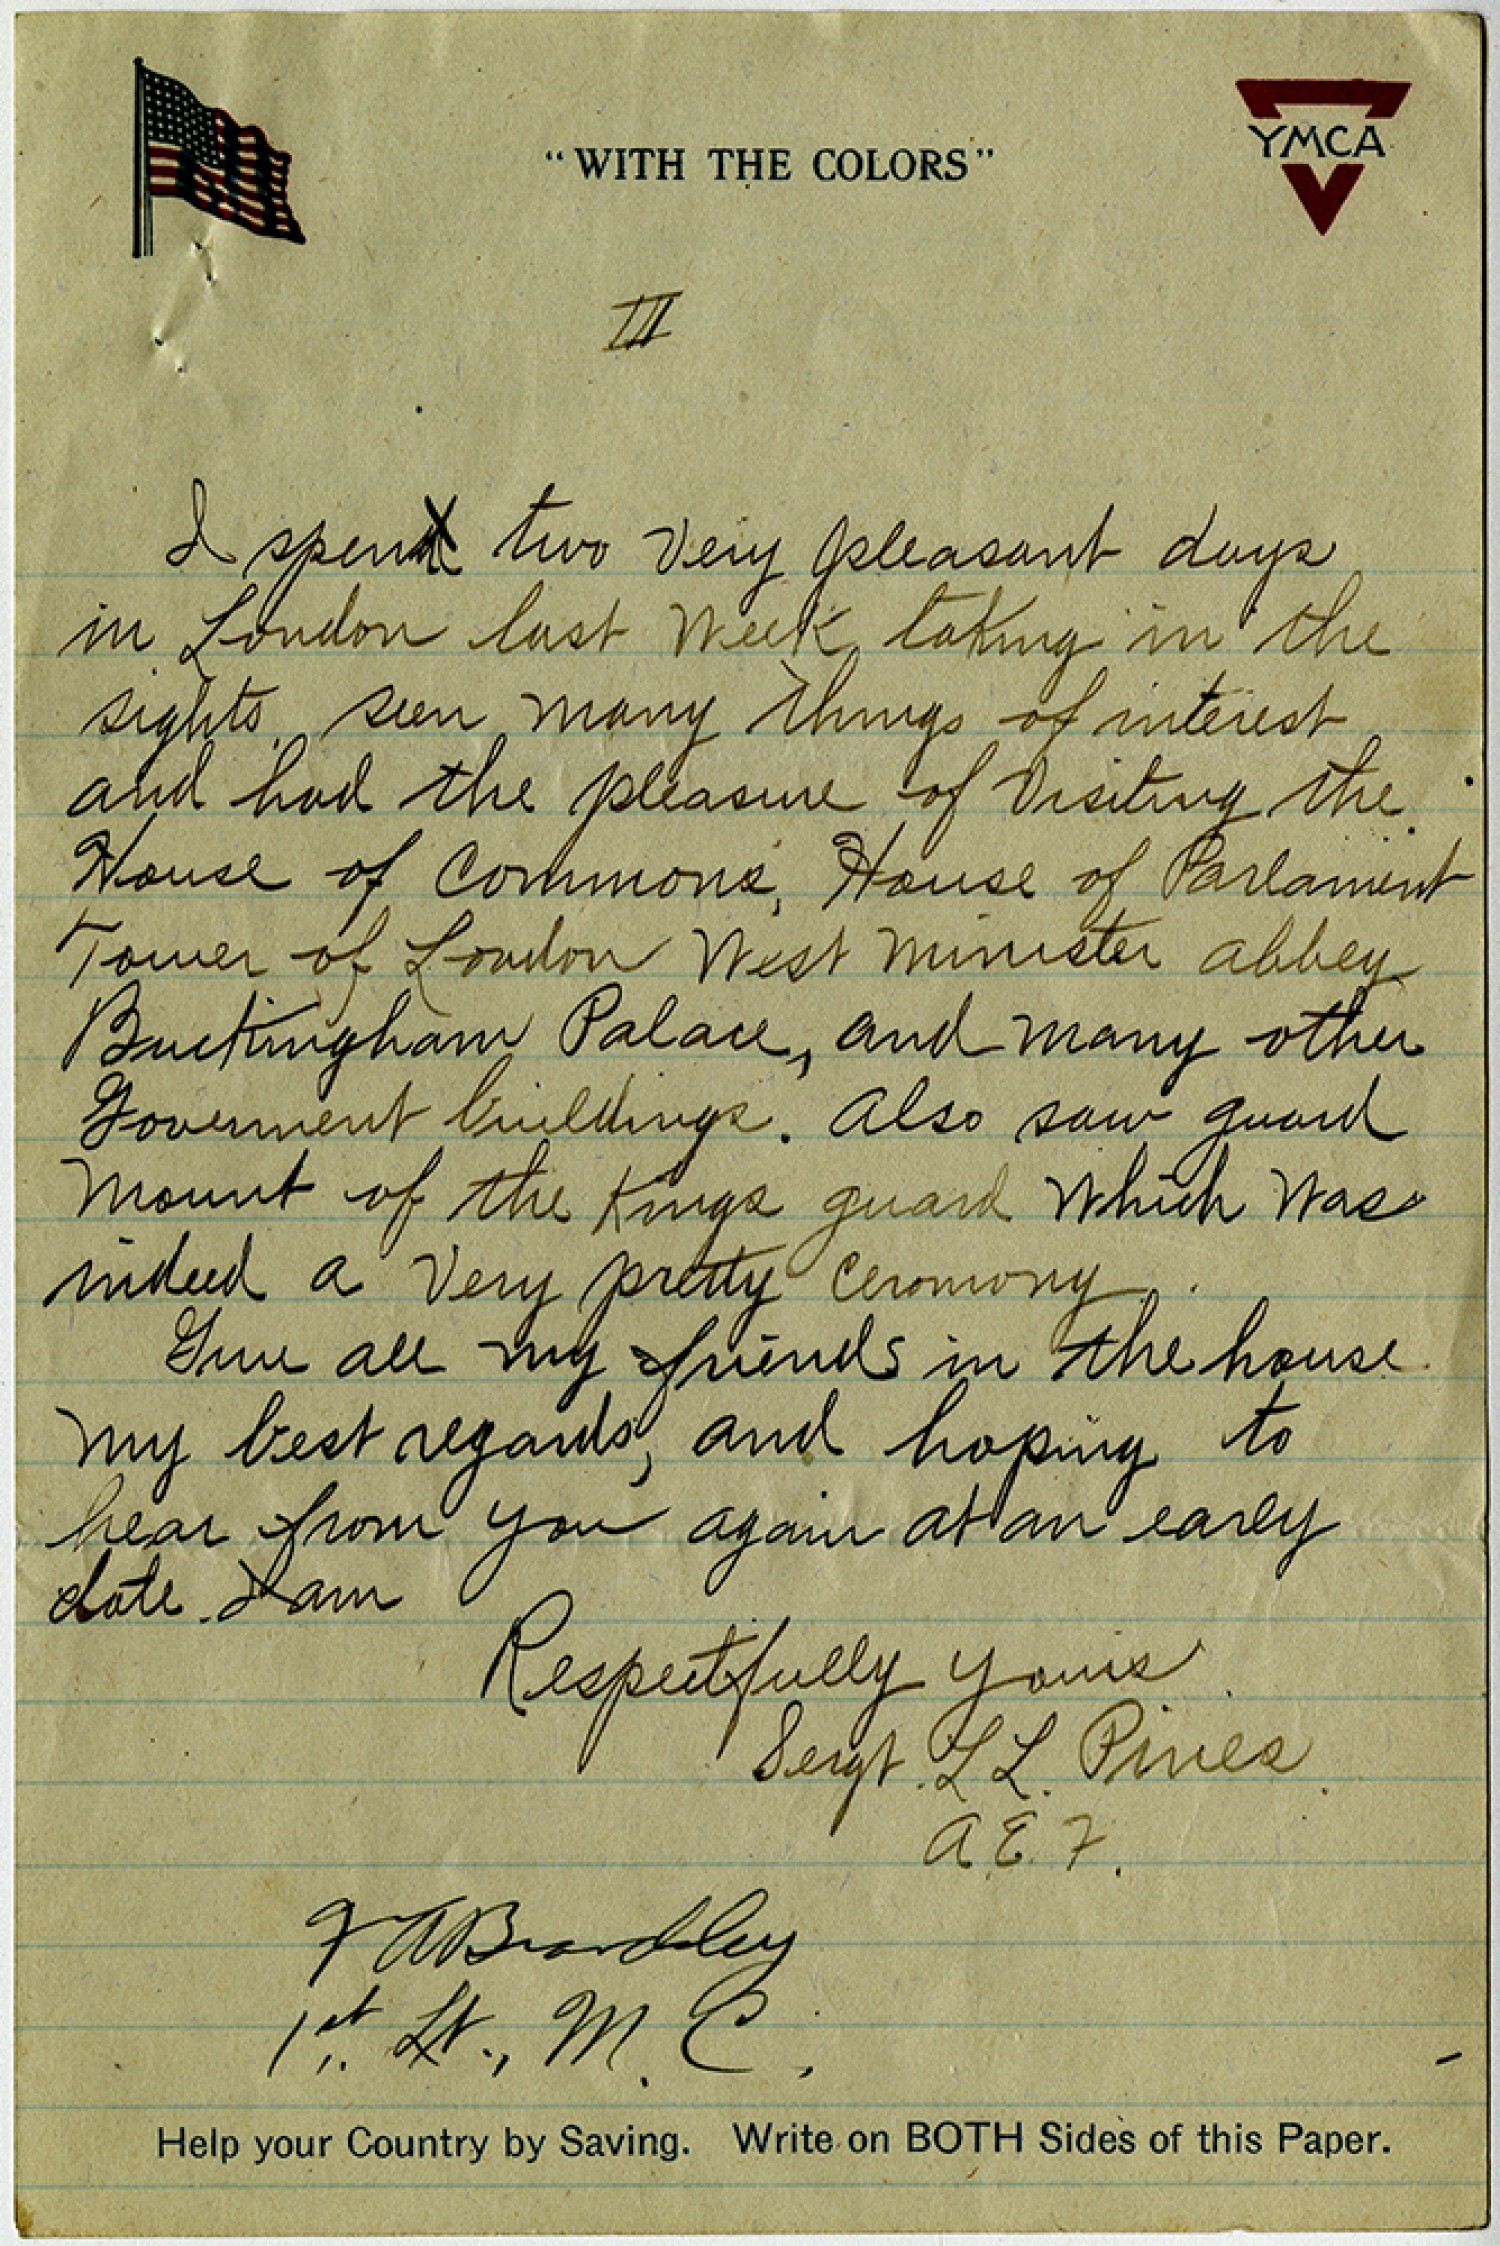 "WITH THE COLORS"
YMCA
III
I spent two very pleasant days
in London last week, taking in the
sights, seen many things of interest
and had the pleasure of visiting the
House of Commons, House of Parlament
Tower of London West Minister abbey
Buckingham Palace, and many other
Goverment buildings. Also saw guard
mount of the Kings guard which was
indeed a very pretty ceromony.
Give all my friends in the house
my best regards, and hoping to
hear from you again at an early
date. I am
Respectfully yours
Sergt. L L. Pines.
A. E. F.
A Bradley
1st. Lt., M. C.,
Help your Country by Saving. Write on BOTH Sides of this Paper.